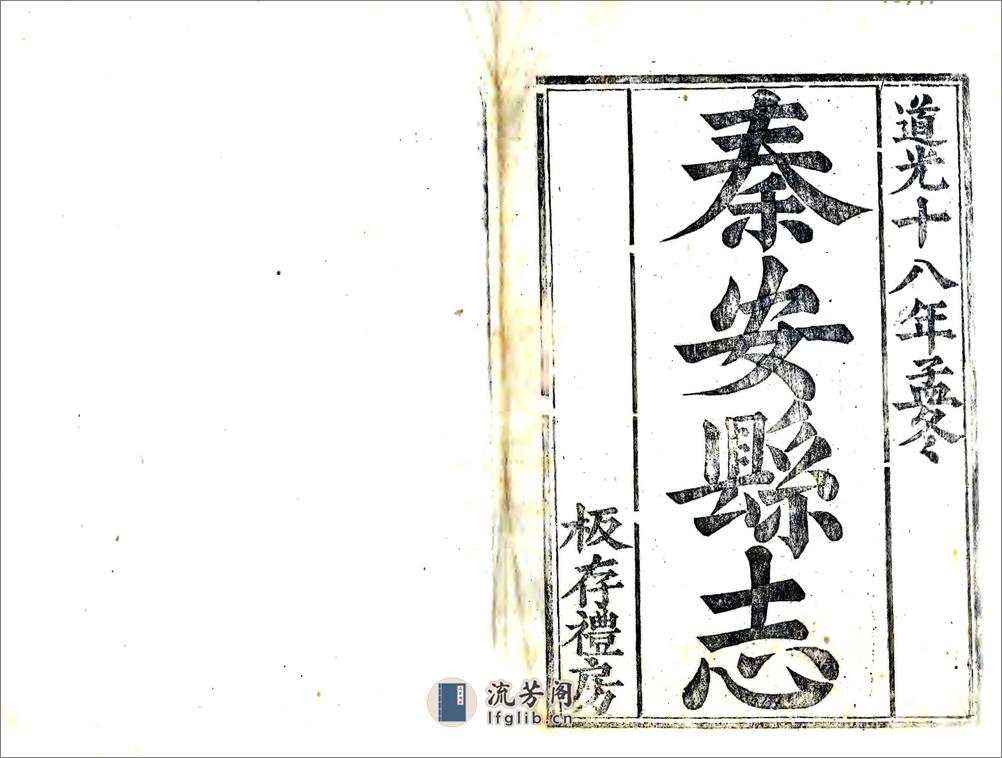 道光十八年孟冬
秦安縣志
板存禮房
流芳阁
lfglib.cn